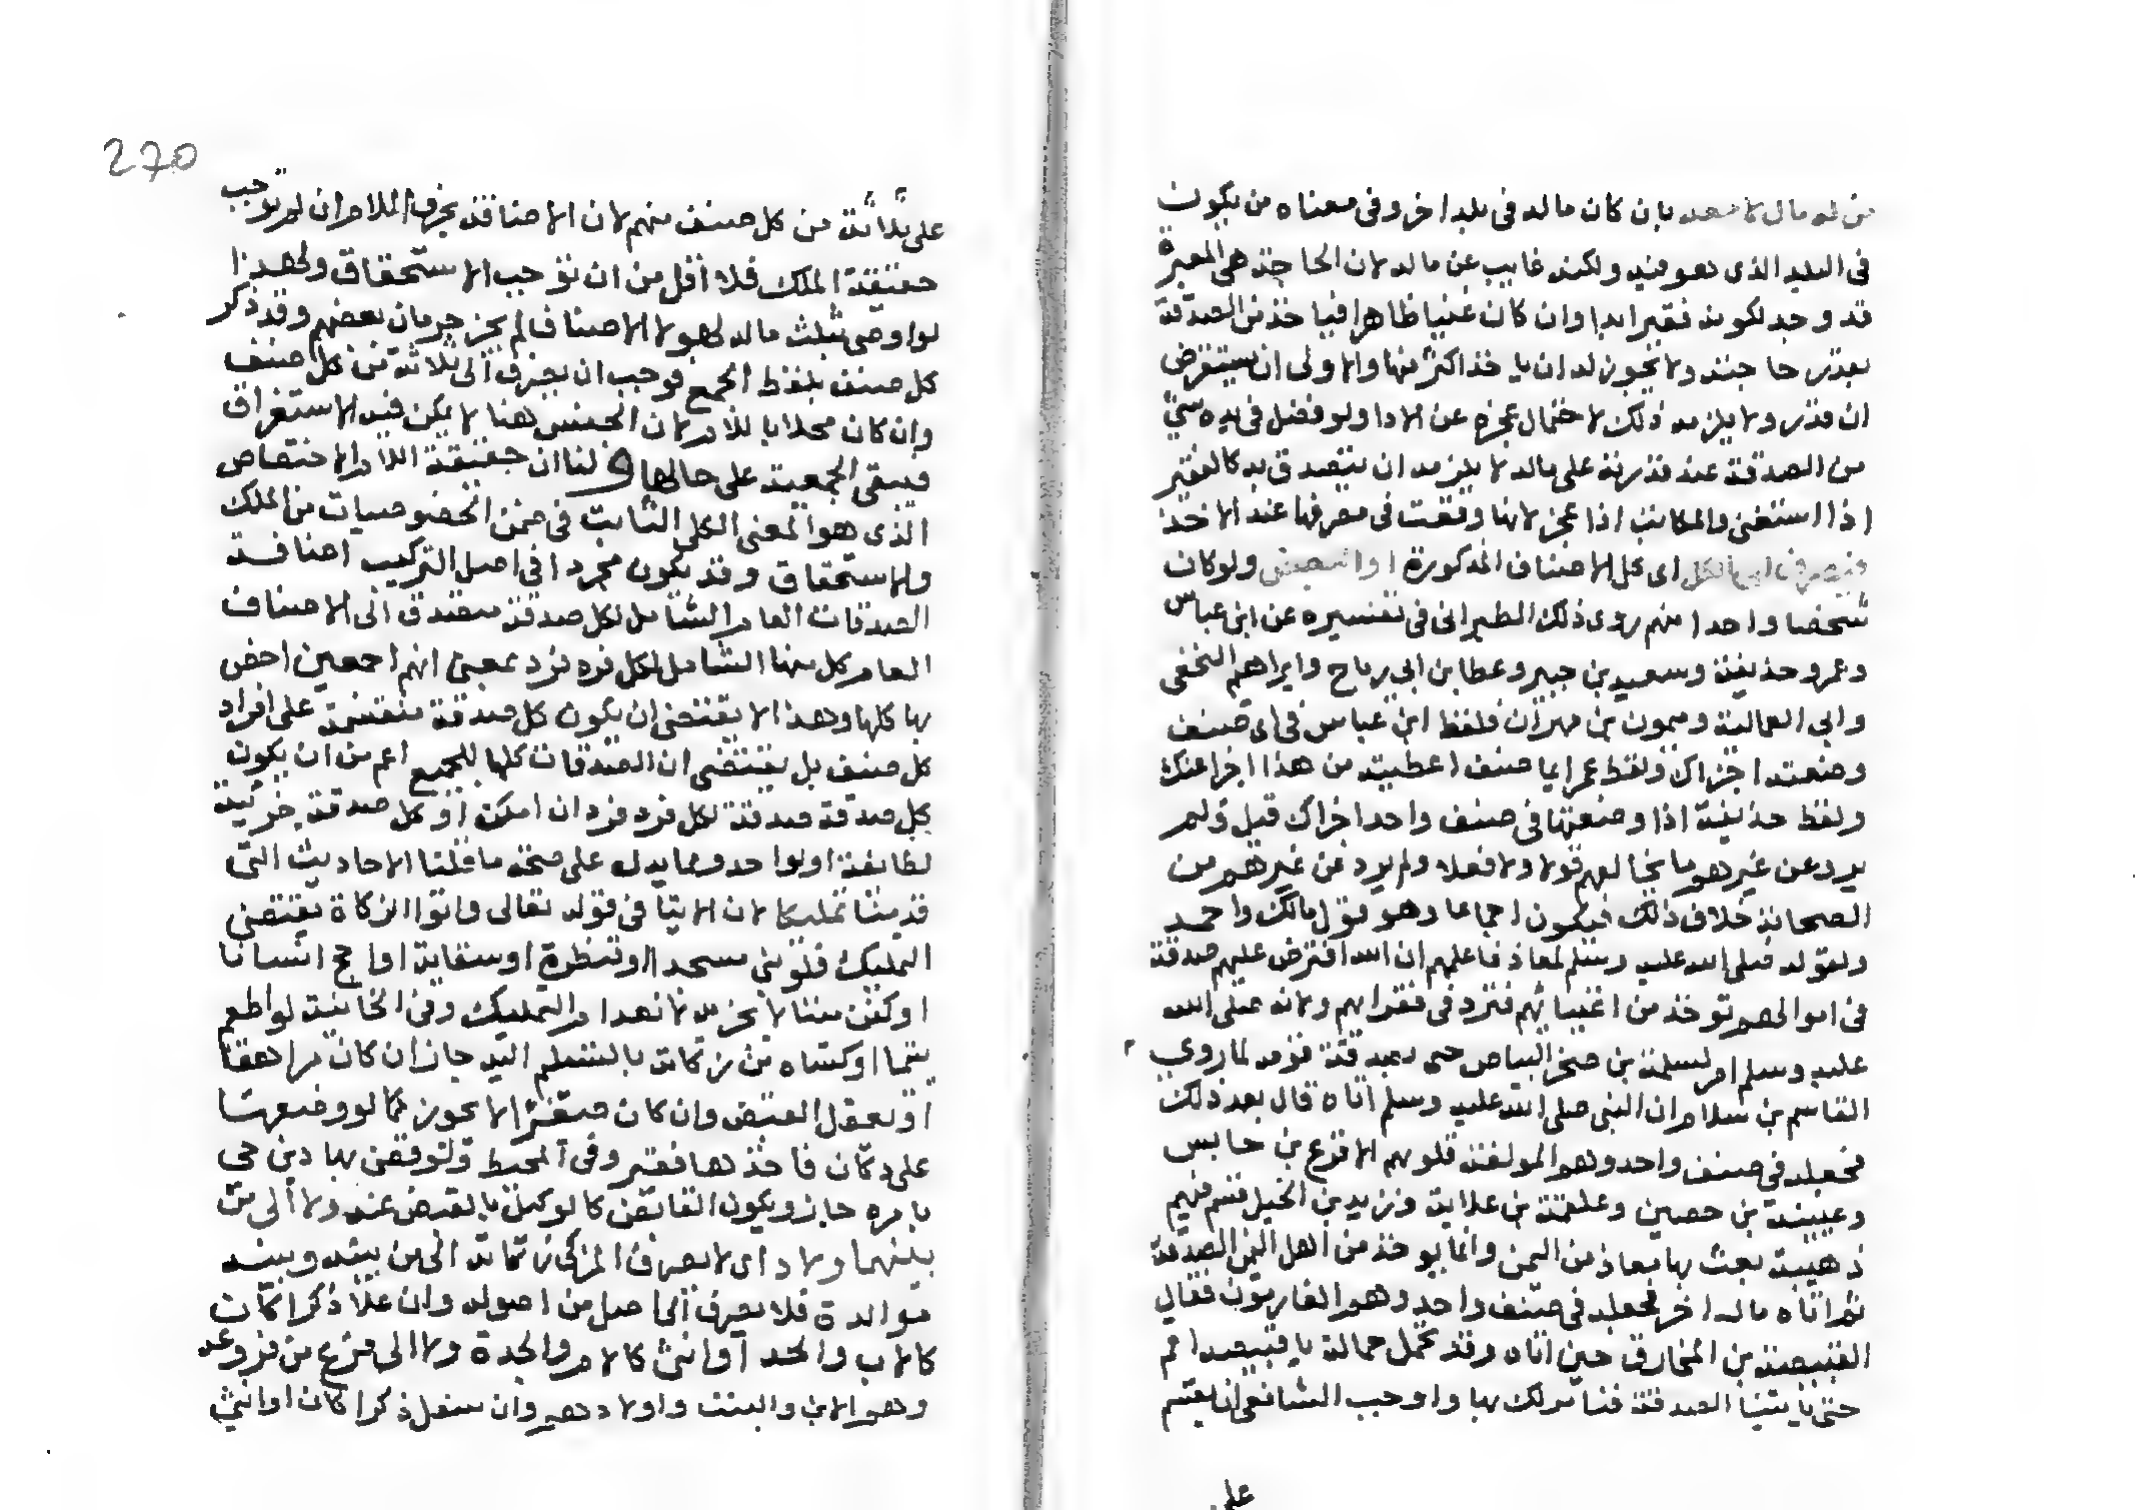 من له مال لا معه بان كان ماله في بلد اخر وفي معناه من يكون
في البلد الذي هو فيه ولكنه غايب عن ماله لان الحاجة هي المعتبرة
قد وجد لكونه فقيرا يدا وان كان غنيا ظاهرا فياخذ من الصدقة
بقدر حاجته ولا يجوز له ان ياخذ اكثر منها والاولى ان يستقرض
ان قدر ولا يلزمه ذلك لاحتمال عجزه عن الادا ولو فضل في يده شي
من الصدقة عند قدرته على ماله لا يلزمه ان يتصدق به كالفقير
اذا استغنى والمكاتب اذا عجز لانها وقعت في مصرفها عند الاخذ
فيصرف الى الكل اى كل الاصناف المذكورة او البعض ولو كان
شخصا واحدا منهم روى ذلك الطبراني في تفسيره عن ابن عباس
وعمر وحذيفة وسعيد بن جبير وعطا بن ابي رباح وابراهيم النخعي
وابي العالية وميمون بن مهران فلفظ ابن عباس في اى صنف
وضعته اجزاك ولفظ عمر ايما صنف اعطيته من هذا اجزا عنك
ولفظ حذيفة اذا وضعتها في صنف واحد اجزاك قيل ولم
يرد عن غيرهم ما يخالفهم قولا ولا فعلا ولم يرد عن غيرهم من
الصحابة خلاف ذلك فيكون اجماعا وهو قول مالك واحمد
ولقوله صلى الله عليه وسلم لمعاذ فاعلمهم ان الله افترض عليهم صدقة
في اموالهم توخذ من اغنيايهم فترد في فقرايهم ولانه صلى الله
عليه وسلم امر لسلمة بن صخر البياضي بصدقة قومه لما روى
القاسم بن سلام ان النبي صلى الله عليه وسلم اتاه قال بعد ذلك
فجعله في صنف واحد وهو المولفة قلوبهم الاقرع بن حابس
وعيينة بن حصين وعلقمة بن علاية وزيد بن الخيل قسم فيهم
ذهيبة بعث بها معاذ من اليمن وانما يوخذ من اهل اليمن الصدقة
ثم اتاه مال اخر فجعله في صنف واحد وهو الغارمون فقال
لقبيصة من المخارق حين اتاه وقد تحمل حمالة يا قبيصة اقم
حتى تاتينا الصدقة فنامر لك بها واوجب الشافعي ان يقسم
على
270
على ثلاثة من كل صنف منهم لان الاضافة بحرف اللام ان لم توجب
حقيقة الملك فلا اقل من ان توجب الاستحقاق ولهذا
لو اوصى بثلث ماله لهولا الاصناف لم يجز حرمان بعضهم وقد ذكر
كل صنف بلفظ الجمع فوجب ان يصرف الى ثلاثة من كل صنف
وان كان محلا باللام لان الجنس هنا لا يمكن فيه الاستغراق
فيبقى الجمعية على حالها ولنا ان حقيقة اللام الاختصاص
الذى هو المعنى الكلى الثابت في ضمن الخصوصيات من الملك
والاستحقاق وقد يكون مجردا في اصل التركيب اضافة
الصدقات العام الشامل لكل صدقة متصدق الى الاصناف
العام كل منها الشامل لكل فرد فرد بمعنى انهم اجمعين اخص
بها كلها وهذا لا يقتضي ان يكون كل صدقة منقسمة على افراد
كل صنف بل يقتضي ان الصدقات كلها للجميع اعم من ان يكون
كل صدقة صدقة لكل فرد فرد ان امكن او كل صدقة جزئية
لطايفة او لواحد ومما يدل على صحة ما قلنا الاحاديث التى
قدمنا تمليكا لان الايتا في قوله تعالى واتوا الزكاة يقتضى
التمليك فلو بنى مسجدا او قنطرة او سقاية او احج انسانا
او كفن ميتا لا يجزيه لانعدام التمليك وفي الخانية لو اطعم
يتيما او كساه من زكاته بالتسليم اليه جاز ان كان مراهقا
او يعقل القبض وان كان صغيرا لا يجوز كما لو وضعها
على دكان فاخذها فقير وفي المحيط ولو قضى بها دين حى
بامره جاز ويكون القابض كالوكيل بالقبض عنه ولا الى من
بينهما ولاد اى لا يصرف المزكى زكاته الى من بينه وبينه
موالدة فلا يصرف الى اصل من اصوله وان علا ذكرا كان
كالاب والجد او انثى كالام والجدة ولا الى فرع من فروعه
وهو الابن والبنت واولادهم وان سفل ذكرا كان او انثى